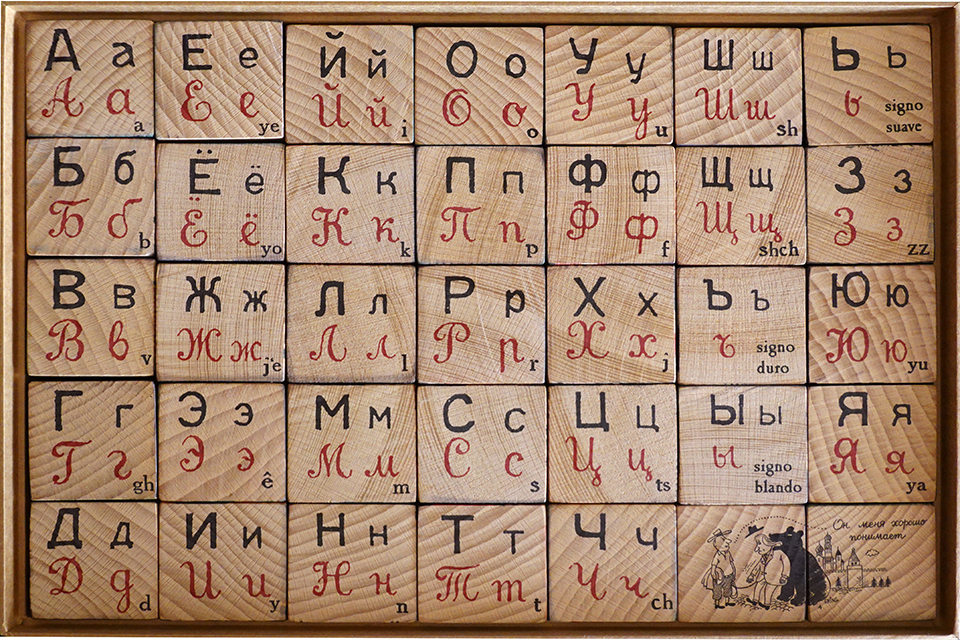 А а Е е Й й О о У у Ш ш Ь ь
А а Е е Й й О о У у Ш ш ь signo
a ye i o u sh suave
Б б Ё ё К к П п Ф ф Щ щ З з
Б б Ё ё К к П п Ф ф Щ щ З з
b yo k p f shch zz
В в Ж ж Л л Р р Х х Ъ ъ Ю ю
В в Ж ж Л л Р р Х х ъ signo Ю ю
v je l r j duro yu
Г г Э э М м С с Ц ц Ы ы Я я
Г г Э э М м С с Ц ц ы signo Я я
gh ê m s ts blando ya
Д д И и Н н Т т Ч ч Он меня хорошо
понимает
Д д И и Н н Т т Ч ч
d y n t ch